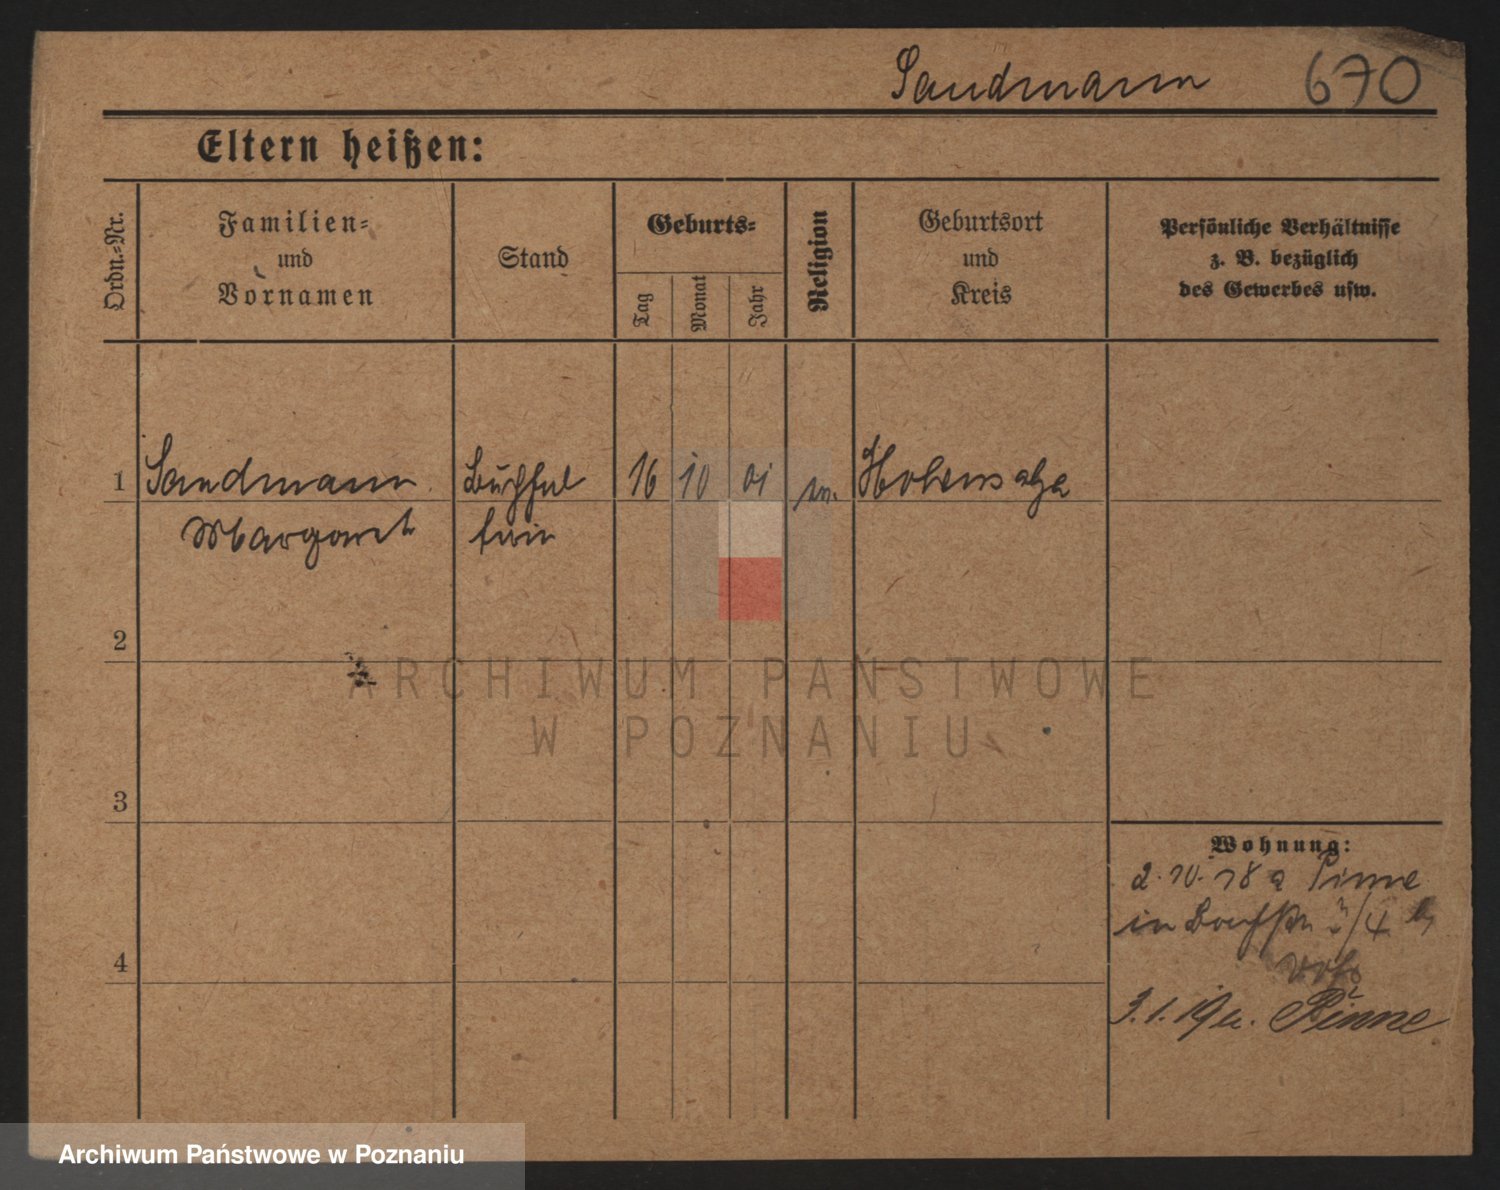 Sandmann 670
Eltern heißen:
Ordn.-Nr.
Familien-
und
Vornamen
Stand
Geburts-
Tag
Monat
Jahr
Religion
Geburtsort
und
Kreis
Persönliche Verhältnisse
z. B. bezüglich
des Gewerbes usw.
1 Sandmann Buchhal 16 10 01 Hohensalza
Margaret terin
2
3
4
Wohnung:
2.10.18 a Pinne
in
3.1.19 a. Pinne
ARCHIWUM PAŃSTWOWE
W POZNANIU
Archiwum Państwowe w Poznaniu